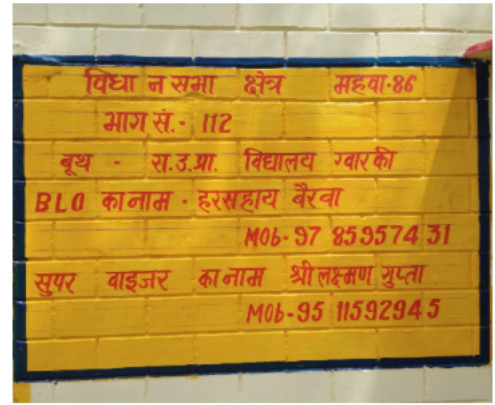 विधा न सभा क्षेत्र महवा-86
भाग सं.- 112
बूथ - रा.उ.प्रा. विद्यालय ग्वारकी
BLO का नाम - हरसहाय बैरवा
MOb- 97 859574 31
सुपर वाइजर का नाम श्री लक्ष्मण गुप्ता
MOb-95 11592945